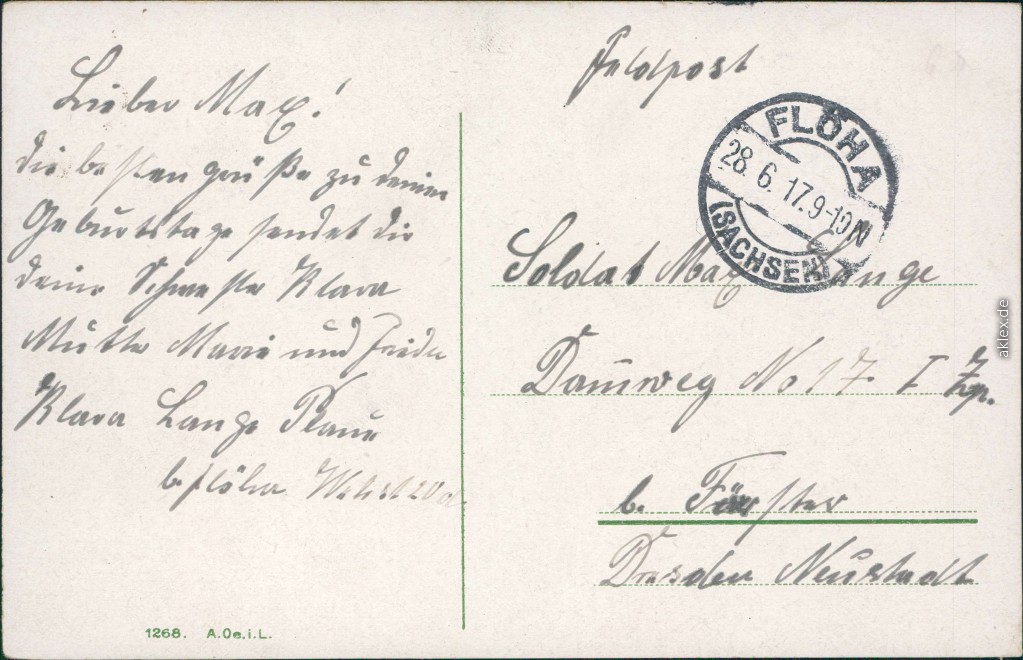 Lieber Max!
die besten grüße zu deinen
Geburtstage sendet die
deine Schwester Klara
Mutter Marie und Frieda
Klara Lange Plaue
b. flöha
1268. A.Oe.i.L.
Feldpost
FLÖHA
28. 6. 17. 9-10 N
(SACHSEN)
Soldat Max Lange
Damweg No 17. I
b. Förster
Dresden Neustadt
aklex.de